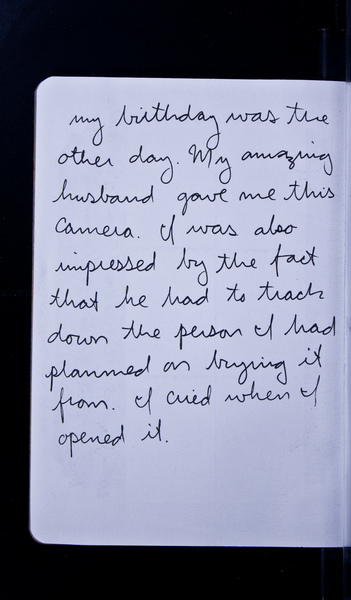 my birthday was the
other day. My amazing
husband gave me this
camera. I was also
impressed by the fact
that he had to track
down the person I had
planned on buying it
from. I cried when I
opened it.